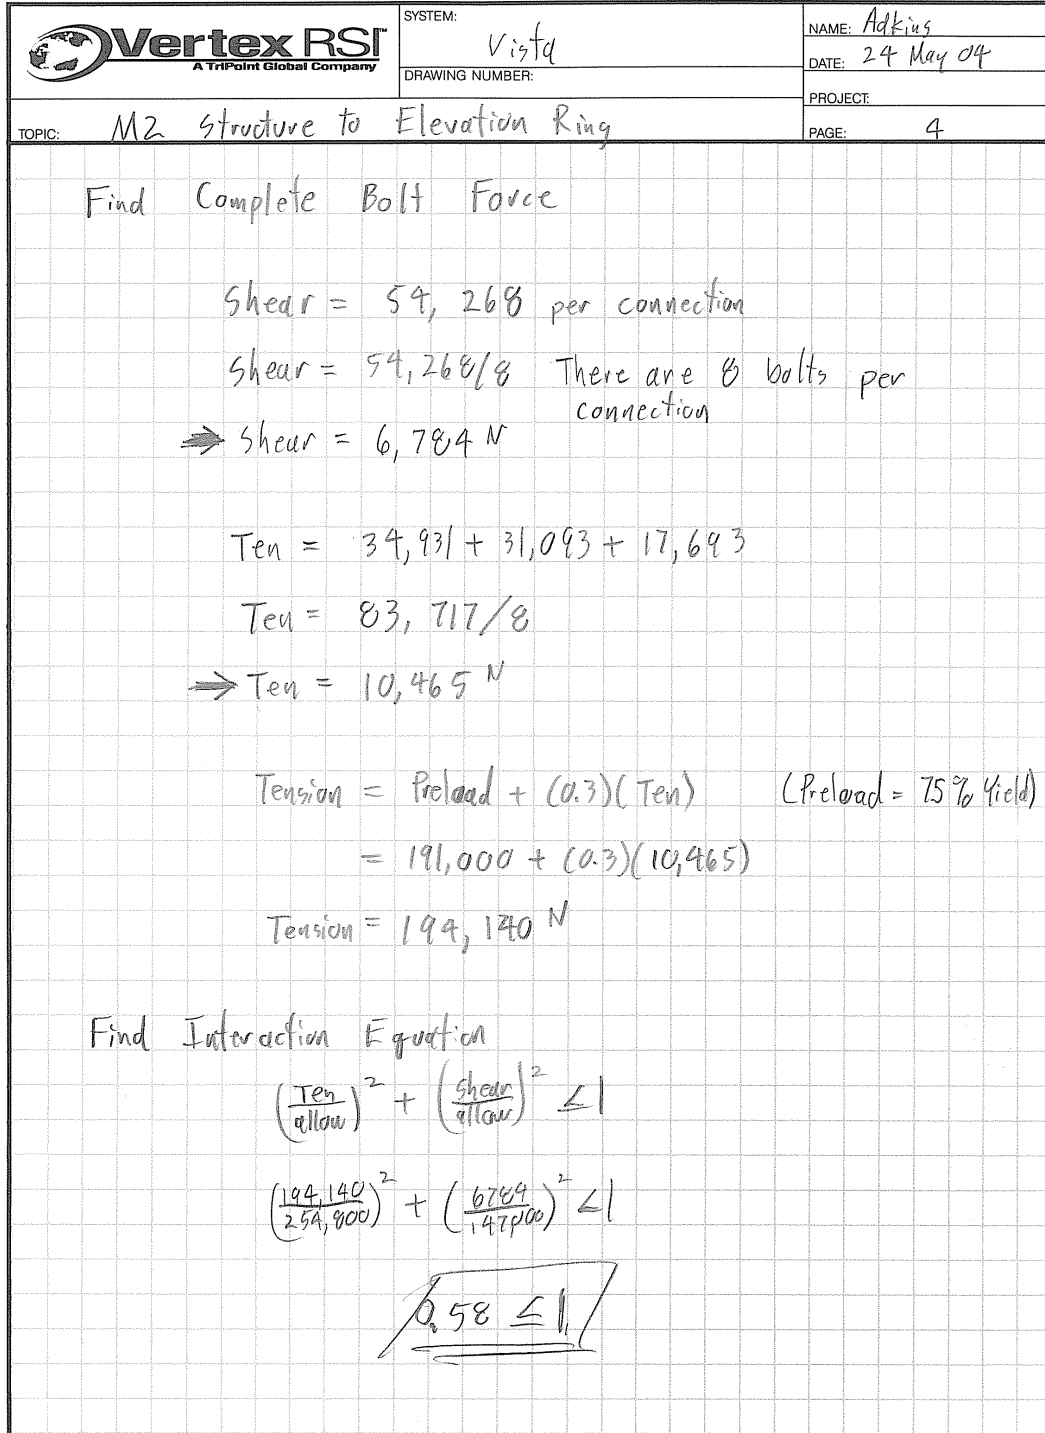 Vertex RSI™
A TriPoint Global Company
SYSTEM:
Vista
DRAWING NUMBER:
NAME: Adkins
DATE: 24 May 04
PROJECT:
TOPIC: M2 Structure to Elevation Ring
PAGE: 4
Find Complete Bolt Force
Shear = 54,268 per connection
Shear = 54,268/8 There are 8 bolts per
connection
⇒ Shear = 6,784 N
Ten = 34,931 + 31,093 + 17,693
Ten = 83,717/8
⇒ Ten = 10,465 N
Tension = Preload + (0.3)(Ten) (Preload = 75% Yield)
= 191,000 + (0.3)(10,465)
Tension = 194,140 N
Find Interaction Equation
(Ten/allow)² + (Shear/allow)² ≤ 1
(194,140/254,800)² + (6784/147,000)² < 1
0.58 ≤ 1